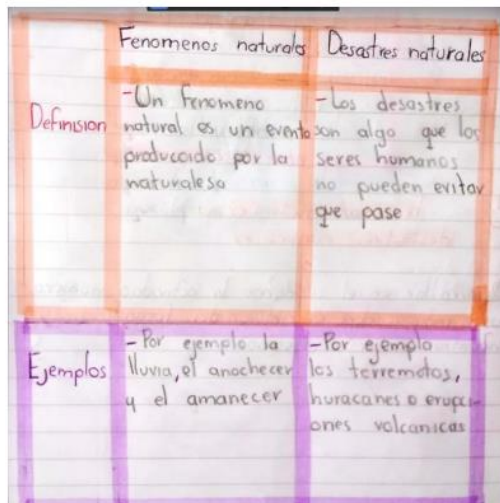 Fenomenos naturales
Desastres naturales
Definision
-Un Fenomeno
natural es un evento
producoido por la
naturalesa
-Los desastres
son algo que los
seres humanos
no pueden evitar
que pase
Ejemplos
-Por ejemplo la
lluvia, el anochecer
y el amanecer
-Por ejemplo
los terremotos,
huracanes o erupci-
ones volcanicas